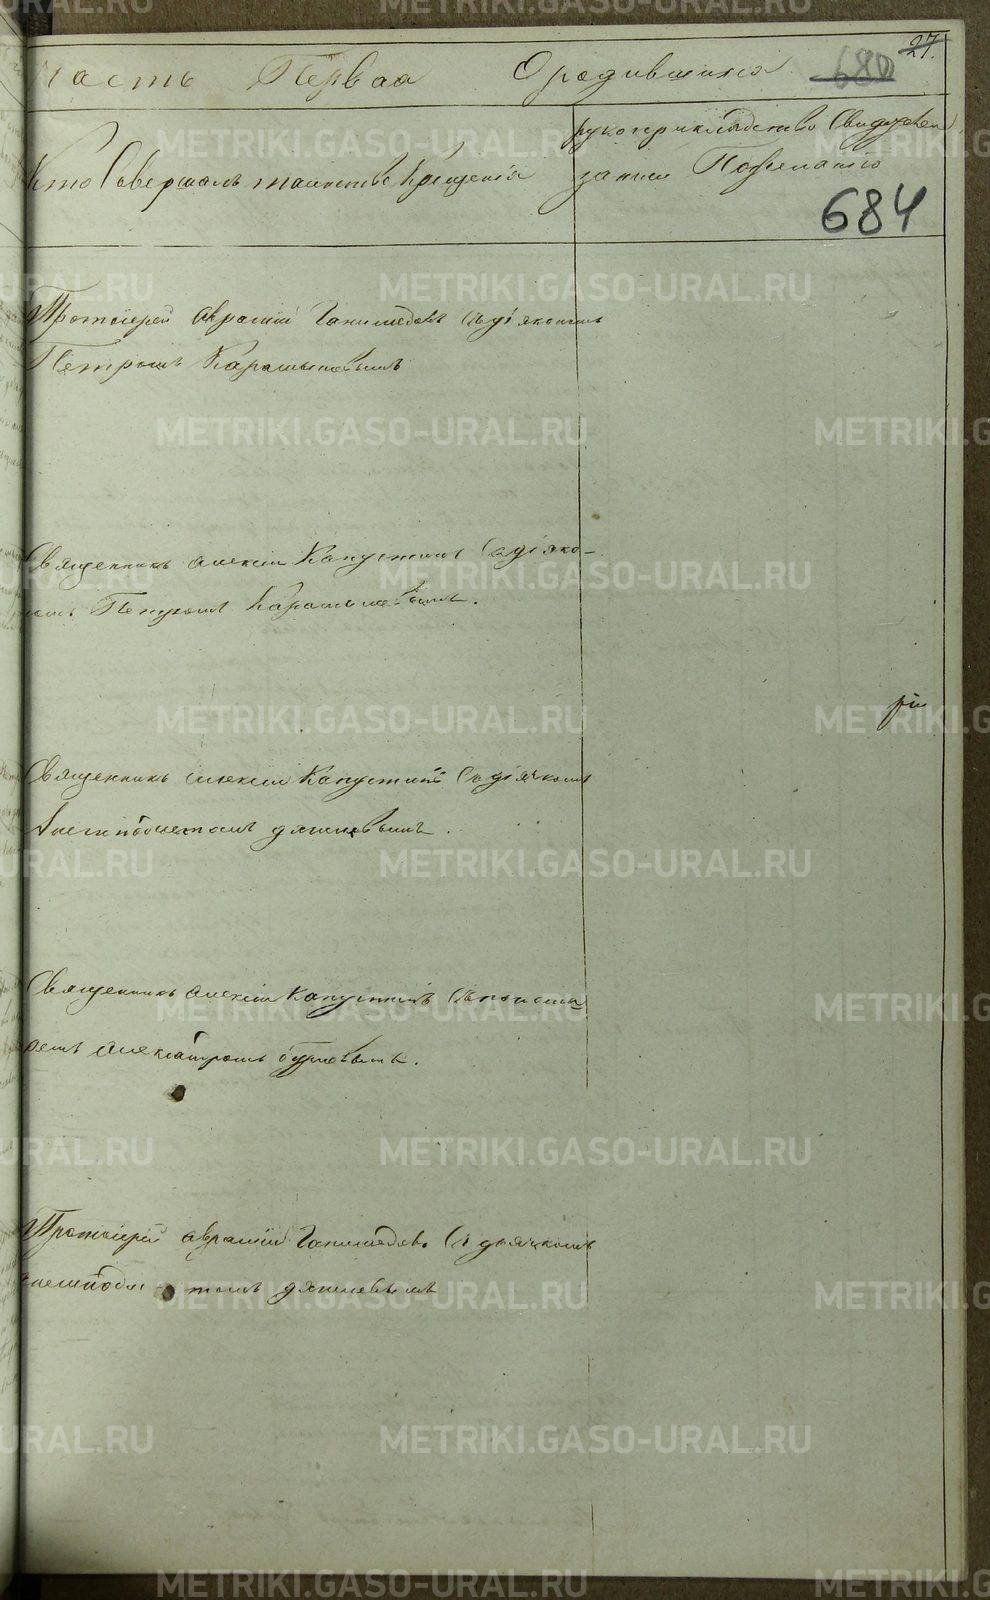 часть Первая Ородившихся 680 27.
Кто Совершалъ таинство Крещенія
рукоприкладство Свидетелей
записи Пожеланію
684
Протоіерей Аврамій Ганимедовъ Съ діакономъ
Петромъ Карамышевымъ
Священникъ Алексій Капустинъ Съ діако-
номъ Петромъ Карамышевымъ.
Священникъ Алексій Капустинъ Съ дьячкомъ
Священникъ Алексій Капустинъ Съ понома
ремъ Александромъ
Протоіерей Аврамій Ганимедовъ Съ дьячкомъ
METRIKI.GASO-URAL.RU